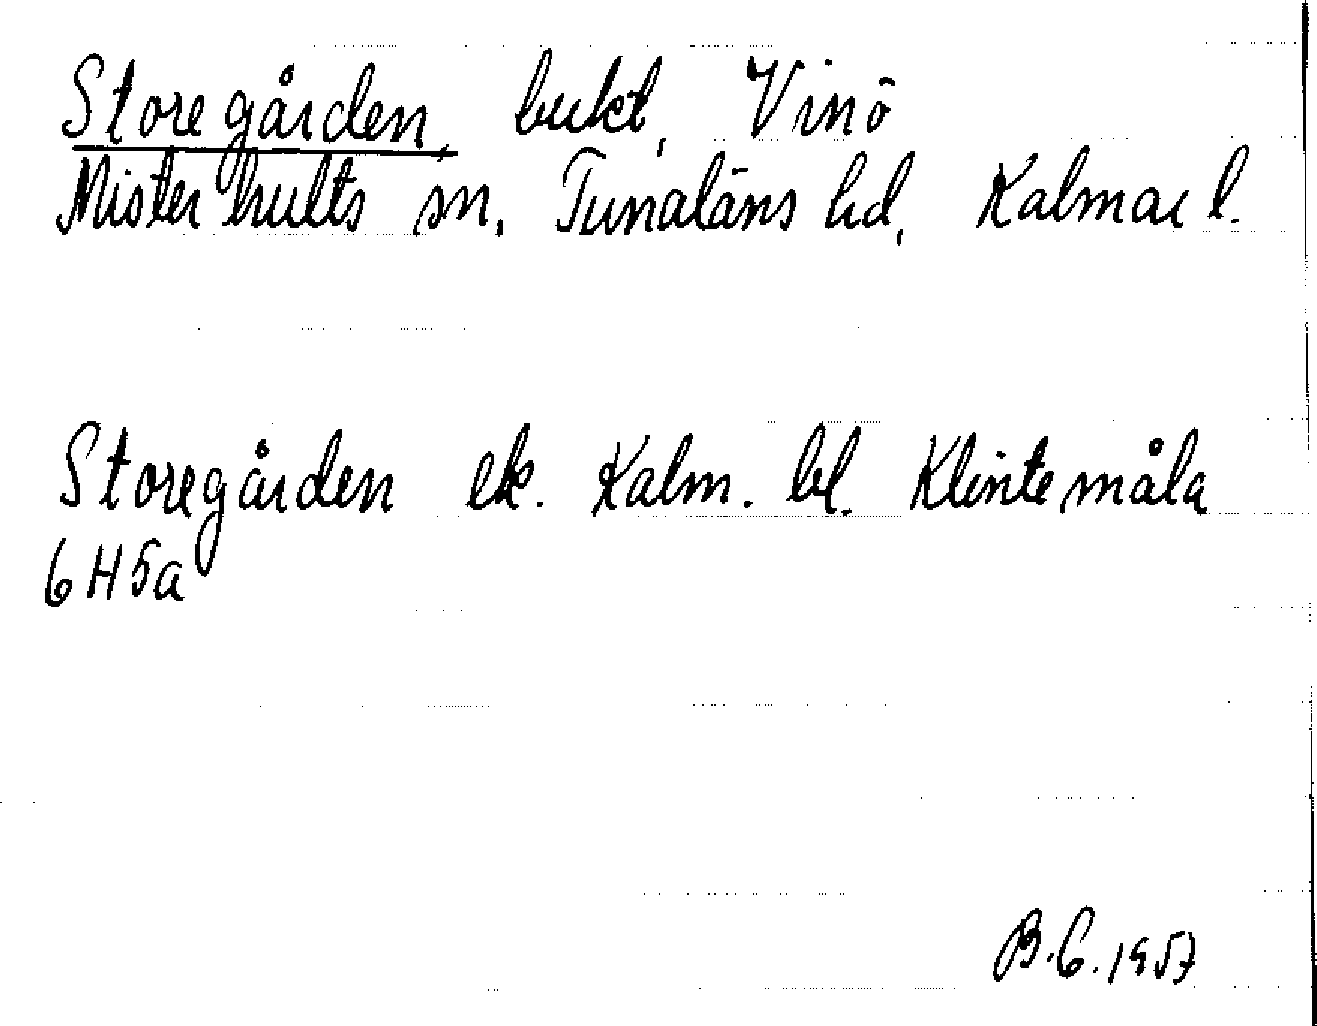 Storegården, bukt, Vinö
Misterhults sn, Tunaläns hd, Kalmar l.
Storegården ek. Kalm. bl. Klintemåla
6H5a
B.G. 1957